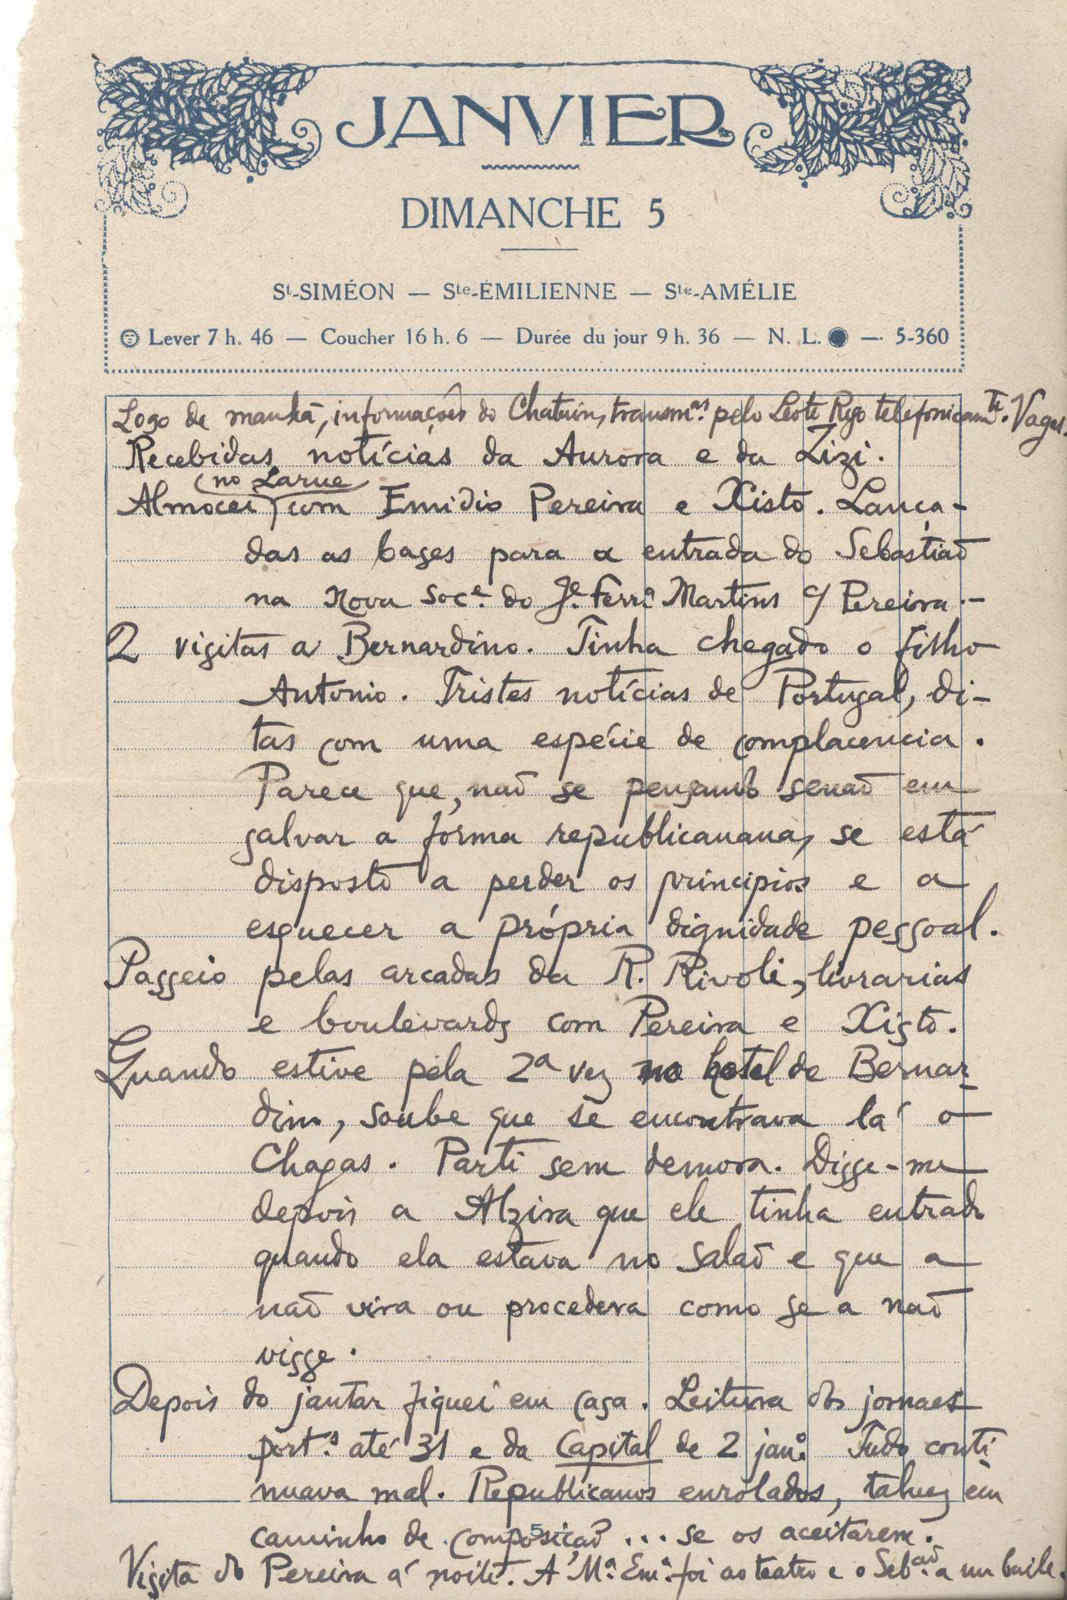 JANVIER
DIMANCHE 5
St-SIMÉON — Ste-ÉMILIENNE — Ste-AMÉLIE
Lever 7 h. 46 — Coucher 16 h. 6 — Durée du jour 9 h. 36 — N. L. — 5-360
Logo de manhã, informações do Chatuin, transm.as pelo Leote Rego telefonicamte. Vagas.
Recebidas notícias da Aurora e da Zizi.
(no Larue)
Almocei com Emidio Pereira e Xisto. Lança-
das as bases para a entrada do Sebastiaõ
na Nova Soce. do Je. Ferra Martins c/ Pereira.-
2 visitas a Bernardino. Tinha chegado o filho
Antonio. Tristes notícias de Portugal, di-
tas com uma espécie de complacencia.
Parece que, naõ se pensando senaõ em
salvar a forma republicanana, se está
disposto a perder os principios e a
esquecer a própria dignidade pessoal.
Passeio pelas arcadas da R. Rivoli, livrarias
e boulevards com Pereira e Xisto.
Quando estive pela 2ª vez no hotel de Bernar-
dim, soube que se encontrava lá o
Chagas. Parti sem demora. Disse-me
depois a Alzira que ele tinha entrado
quando ela estava no salaõ e que a
naõ vira ou procedera como se a naõ
visse.
Depois do jantar fiquei em casa. Leitura dos jornaes
port.s até 31 e da Capital de 2 jan.º Tudo conti-
nuava mal. Republicanos enrolados, talvez em
caminho de composiçaõ ... se os aceitarem.
5
Visita do Pereira á noite. A Mª. Emª. foi ao teatro e o Sebaõ. a um baile.